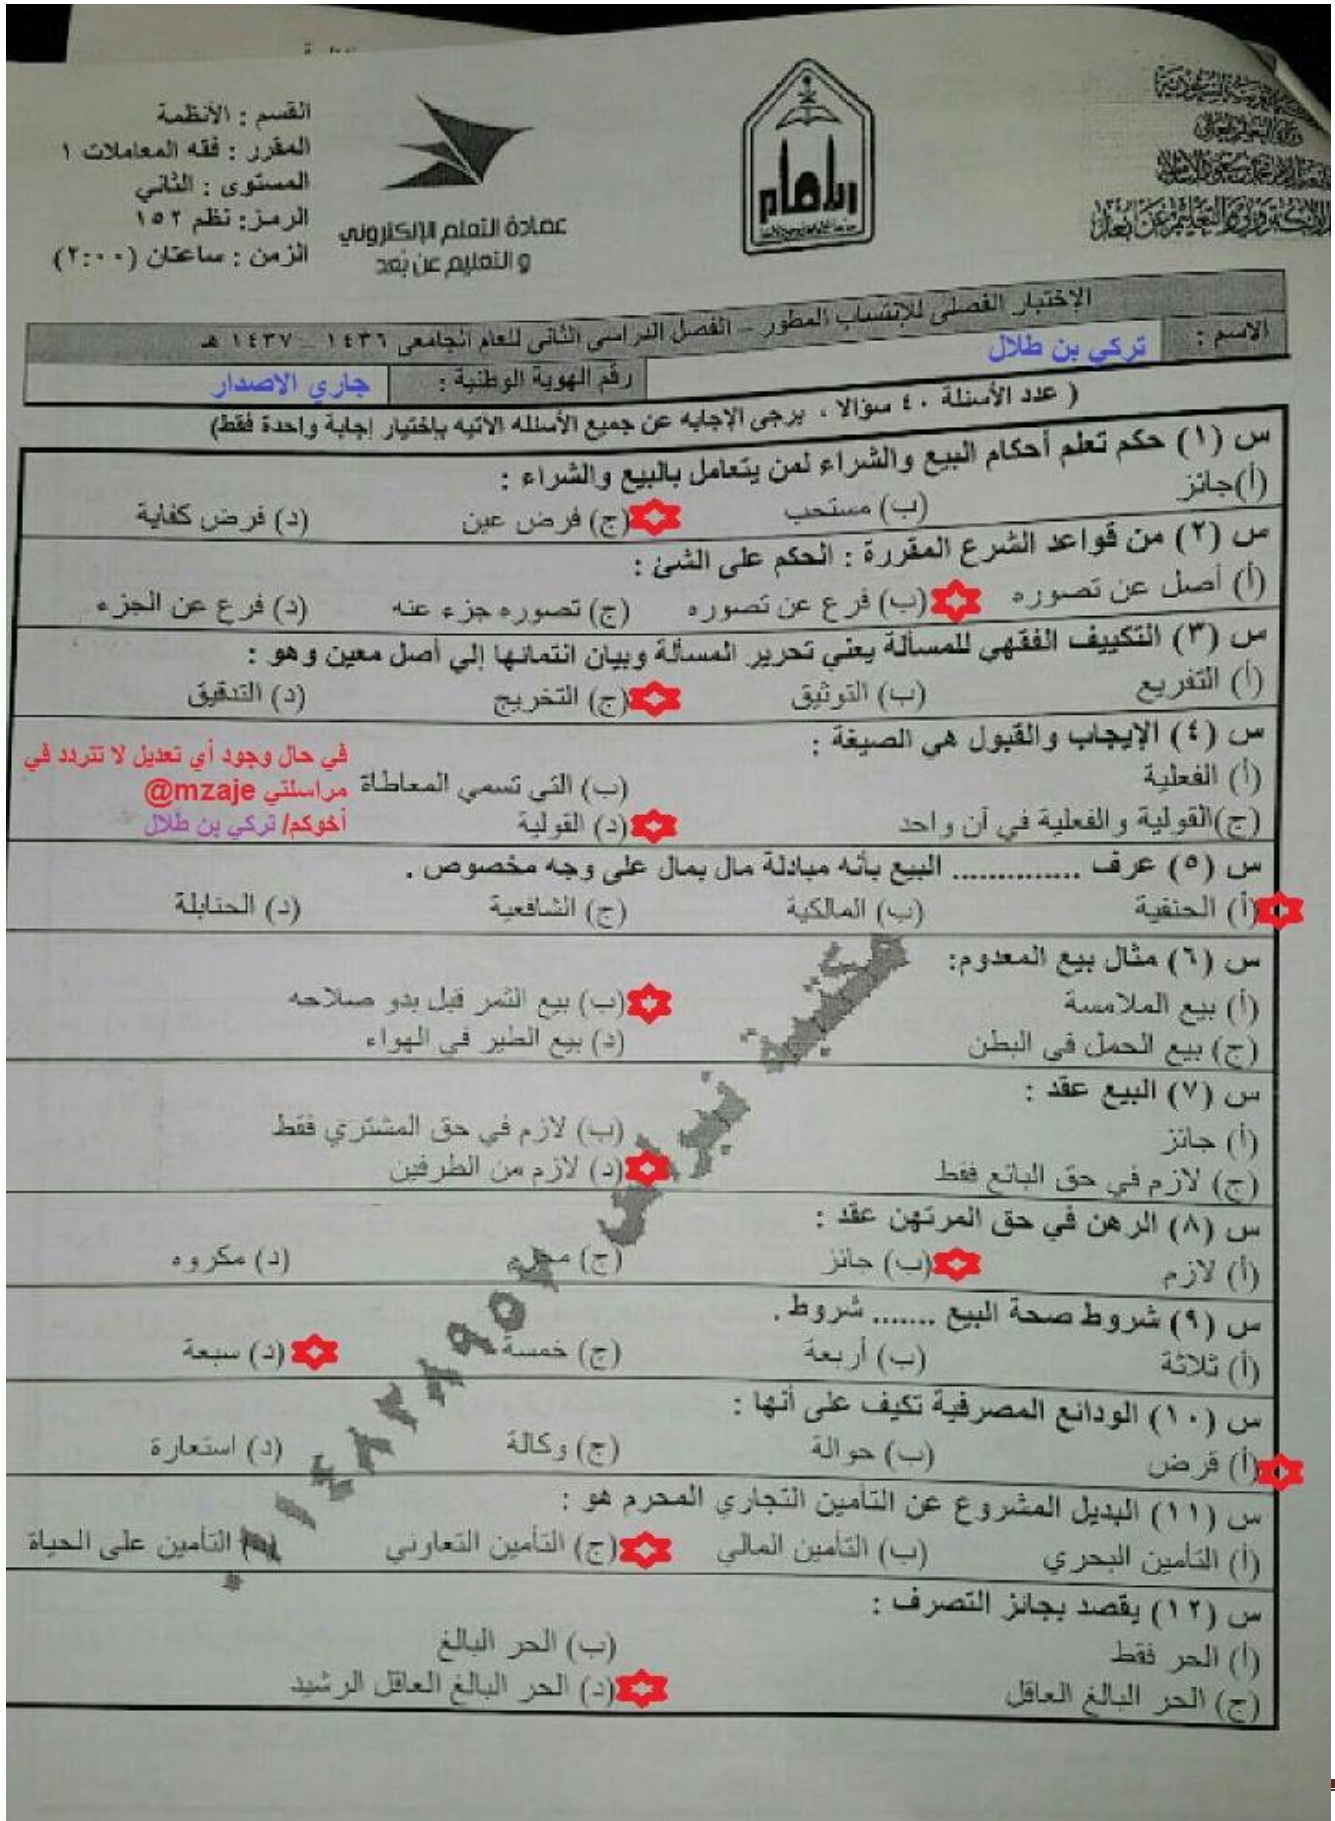 القسم : الأنظمة
المقرر : فقه المعاملات ١
المستوى : الثاني
الرمز: نظم ١٥٢
الزمن : ساعتان (٢:٠٠)
عمادة التعلم الإلكتروني
و التعليم عن بعد
الإختبار الفصلي للإنتساب المطور - الفصل الدراسي الثاني للعام الجامعي ١٤٣٦ - ١٤٣٧ هـ
الاسم : تركي بن طلال
رقم الهوية الوطنية : جاري الاصدار
( عدد الأسئلة ٤٠ سؤالا ، يرجى الإجابه عن جميع الأسئله الاتيه بإختيار إجابة واحدة فقط)
س (١) حكم تعلم أحكام البيع والشراء لمن يتعامل بالبيع والشراء :
(أ)جائز (ب) مستحب (ج) فرض عين (د) فرض كفاية
س (٢) من قواعد الشرع المقررة : الحكم على الشئ :
(أ) أصل عن تصوره (ب) فرع عن تصوره (ج) تصوره جزء عنه (د) فرع عن الجزء
س (٣) التكييف الفقهي للمسألة يعني تحرير المسألة وبيان انتمائها إلي أصل معين وهو :
(أ) التفريع (ب) التوثيق (ج) التخريج (د) التدقيق
س (٤) الإيجاب والقبول هي الصيغة :
(أ) الفعلية (ب) التي تسمي المعاطاة
(ج)القولية والفعلية في آن واحد (د) القولية
في حال وجود أي تعديل لا تتردد في
مراسلتي @mzaje
أخوكم/ تركي بن طلال
س (٥) عرف .............. البيع بأنه مبادلة مال بمال على وجه مخصوص .
(أ) الحنفية (ب) المالكية (ج) الشافعية (د) الحنابلة
س (٦) مثال بيع المعدوم:
(أ) بيع الملامسة (ب) بيع الثمر قبل بدو صلاحه
(ج) بيع الحمل في البطن (د) بيع الطير في الهواء
س (٧) البيع عقد :
(أ) جائز (ب) لازم في حق المشتري فقط
(ج) لازم في حق البائع فقط (د) لازم من الطرفين
س (٨) الرهن في حق المرتهن عقد :
(أ) لازم (ب) جائز (ج) محرم (د) مكروه
س (٩) شروط صحة البيع ....... شروط .
(أ) ثلاثة (ب) أربعة (ج) خمسة (د) سبعة
س (١٠) الودائع المصرفية تكيف على أنها :
(أ) قرض (ب) حوالة (ج) وكالة (د) استعارة
س (١١) البديل المشروع عن التأمين التجاري المحرم هو :
(أ) التأمين البحري (ب) التأمين المالي (ج) التأمين التعاوني التأمين على الحياة
س (١٢) يقصد بجائز التصرف :
(أ) الحر فقط (ب) الحر البالغ
(ج) الحر البالغ العاقل (د) الحر البالغ العاقل الرشيد